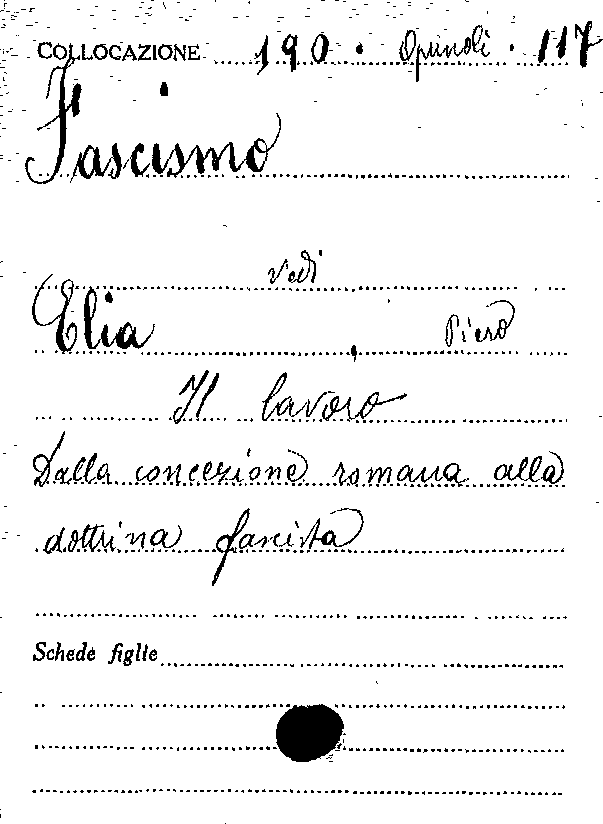 COLLOCAZIONE 190 . Opuscoli . 117
Fascismo
vedi
Elia , Piero
Il lavoro
Dalla concezione romana alla
dottrina fascista
Schede figlie